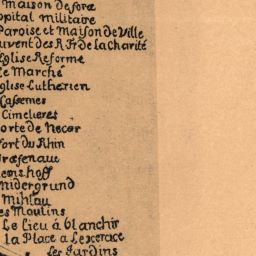 Maison de force
opital militaire
Paroise et Maison de Ville
uvent des R. Fr de la Charité
Eglise Reforme
Le Marché
glise Lutherien
Cassernes
Cimetieres
orte de Necer
ort du Rhin
Græfenau
hemshoff
Nidergrund
Mihlau
es Moulins
Le Lieu á blanchir
la Place a Lexercice
les Jardins